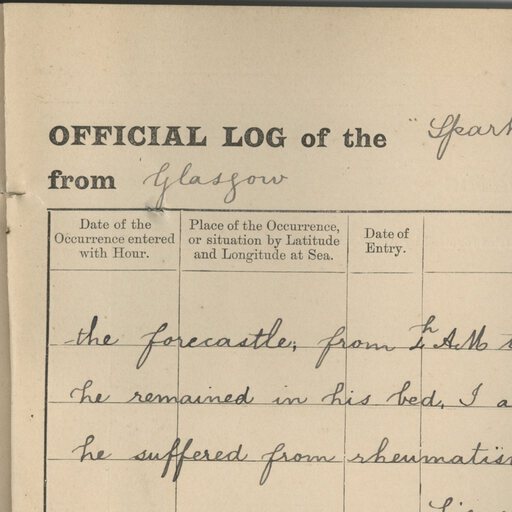 OFFICIAL LOG of the "Spark
from Glasgow
Date of the Occurrence entered with Hour.
Place of the Occurrence, or situation by Latitude and Longitude at Sea.
Date of Entry.
the forecastle; from 4h AM
he remained in his bed, I a
he suffered from rheumatis